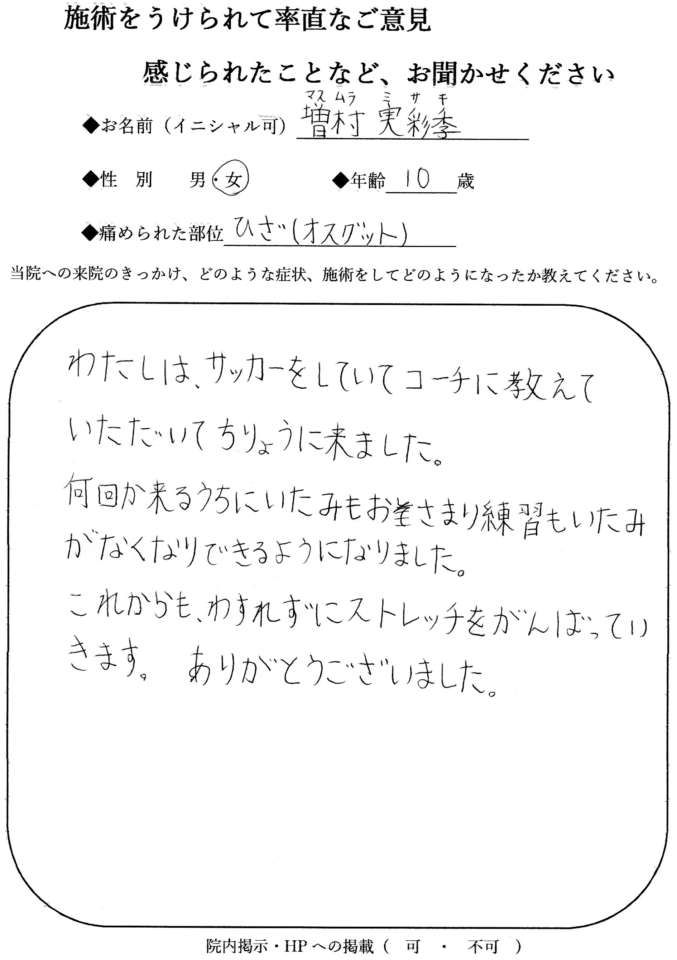 施術をうけられて率直なご意見
感じられたことなど、お聞かせください
マスムラ ミサキ
◆お名前（イニシャル可） 増村 実彩季
◆性 別 男・女 ◆年齢 10 歳
◆痛められた部位 ひざ(オスグット)
当院への来院のきっかけ、どのような症状、施術をしてどのようになったか教えてください。
わたしは、サッカーをしていてコーチに教えて
いただいてちりょうに来ました。
何回か来るうちにいたみもおさまり練習もいたみ
がなくなりできるようになりました。
これからも、わすれずにストレッチをがんばってい
きます。 ありがとうございました。
院内掲示・HPへの掲載（ 可 ・ 不可 ）